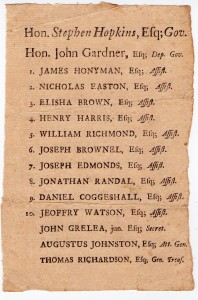 Hon. Stephen Hopkins, Esq; Gov.
Hon. John Gardner, Esq; Dep. Gov.
1. JAMES HONYMAN, Esq; Assist.
2. NICHOLAS EASTON, Esq; Assist.
3. ELISHA BROWN, Esq; Assist.
4. HENRY HARRIS, Esq; Assist.
5. WILLIAM RICHMOND, Esq; Assist.
6. JOSEPH BROWNEL, Esq; Assist.
7. JOSEPH EDMONDS, Esq; Assist.
8. JONATHAN RANDAL, Esq; Assist.
9. DANIEL COGGESHALL, Esq; Assist.
10. JEOFFRY WATSON, Esq; Assist.
JOHN GRELEA, jun. Esq; Secret.
AUGUSTUS JOHNSTON, Esq; Att. Gen.
THOMAS RICHARDSON, Esq; Gen. Treas.